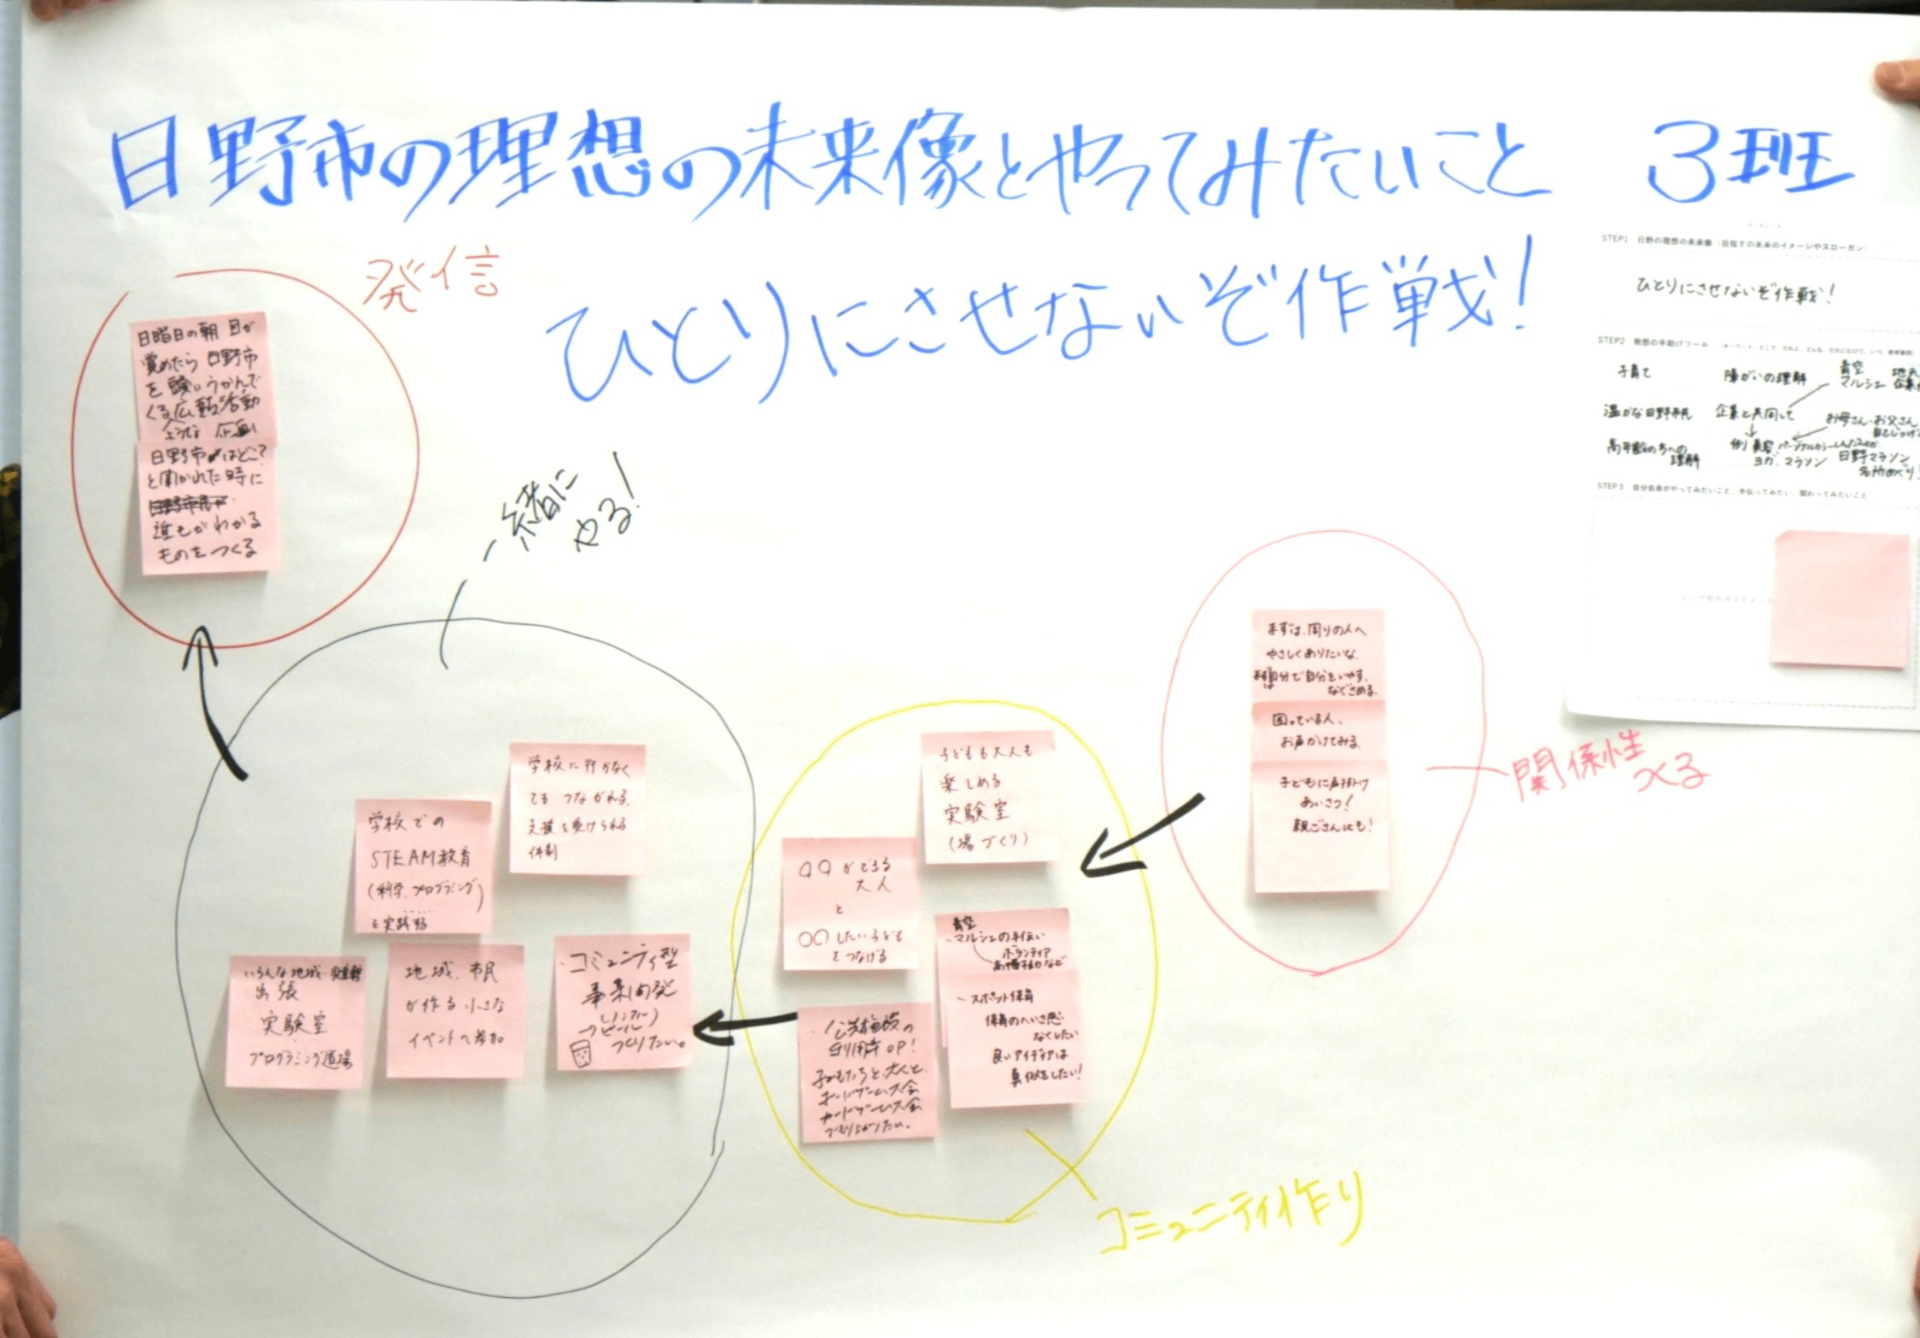 日野市の理想の未来像とやってみたいこと 3班
ひとりにさせないぞ作戦!
発信
日曜日の朝 目が
覚めたら 日野市
を
くる広報活動
企画
日野市はどこ?
と聞かれた時に
誰もがわかる
ものをつくる
一緒に
やる!
学校に行かなく
てもつながれる、
支援を受けられる
体制
学校での
STEAM教育
(科学、プログラミング)
を実践
いろんな地域
出張
実験室
プログラミング道場
地域、市民
が作る小さな
イベントへ参加
・コミュニティ型
事業
つくりたい。
子どもも大人も
楽しめる
実験室
(場づくり)
〇〇ができる
大人
と
〇〇したい子ども
をつなげる
青空
・マルシェの手伝い
ボランティア
・スポット保育
保育のへいさ感
なくしたい
良いアイディアは
真似をしたい!
・公共施設の
子どもたちと、大人と、
ボードゲーム大会
カードゲーム大会
でもり上がりたい。
コミュニティ作り
まずは、周りの人へ
やさしくありたいな。
自分で自分をいやす、
なぐさめる。
困っている人、
お声かけてみる。
子どもに声掛け
あいさつ!
親ごさんにも!
関係性
つくる
STEP1 日野の理想の未来像(目指すの未来のイメージやスローガン)
ひとりにさせないぞ作戦!
STEP2 発想の手助けツール
子育て 障がいの理解 青空
マルシェ
温かな日野市民 企業と共同して お母さん・お父さん
高年齢の方への
理解
ヨガ、マラソン
日野マラソン
名所めぐり
STEP3 自分自身がやってみたいこと、手伝ってみたい、関わってみたいこと